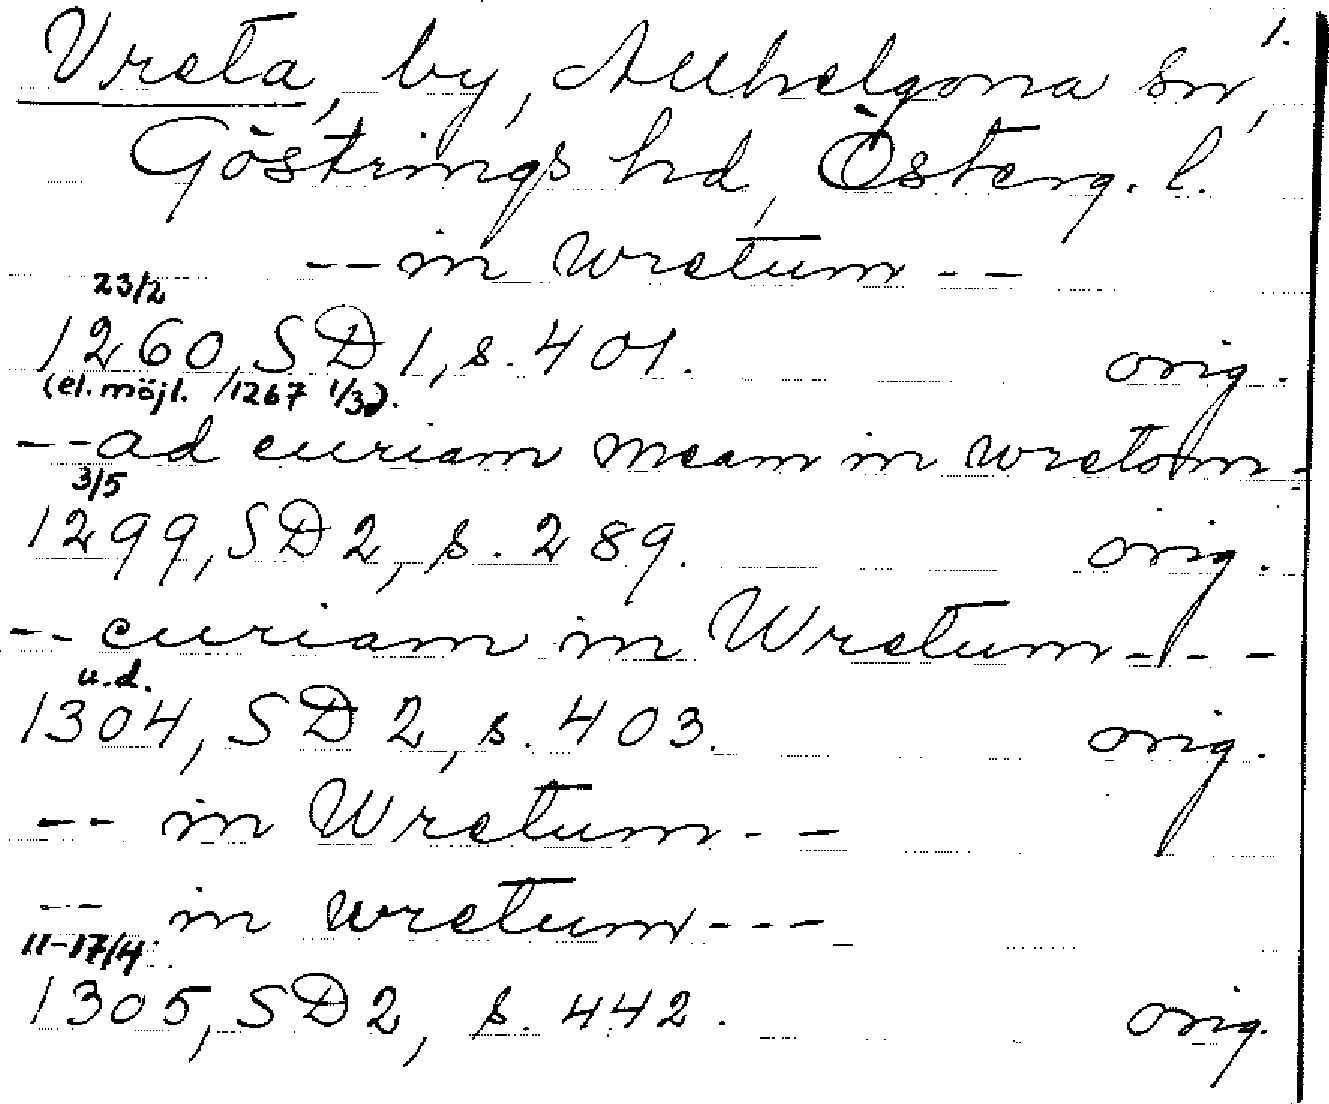 1.
Vreta, by, Allhelgona sn,
Göstrings hd, Österg. l.
-- in wretum --
23/2
1260, SD 1, s. 401. orig.
(el. möjl. 1267 1/3).
-- ad curiam meam in wretom -
3/5
1299, SD 2, s. 289. orig.
-- curiam in Wretum - - -
u.d.
1304, SD 2, s. 403. orig.
-- in Wretum - -
-- in wretum - - -
11-17/4
1305, SD 2, s. 442. orig.